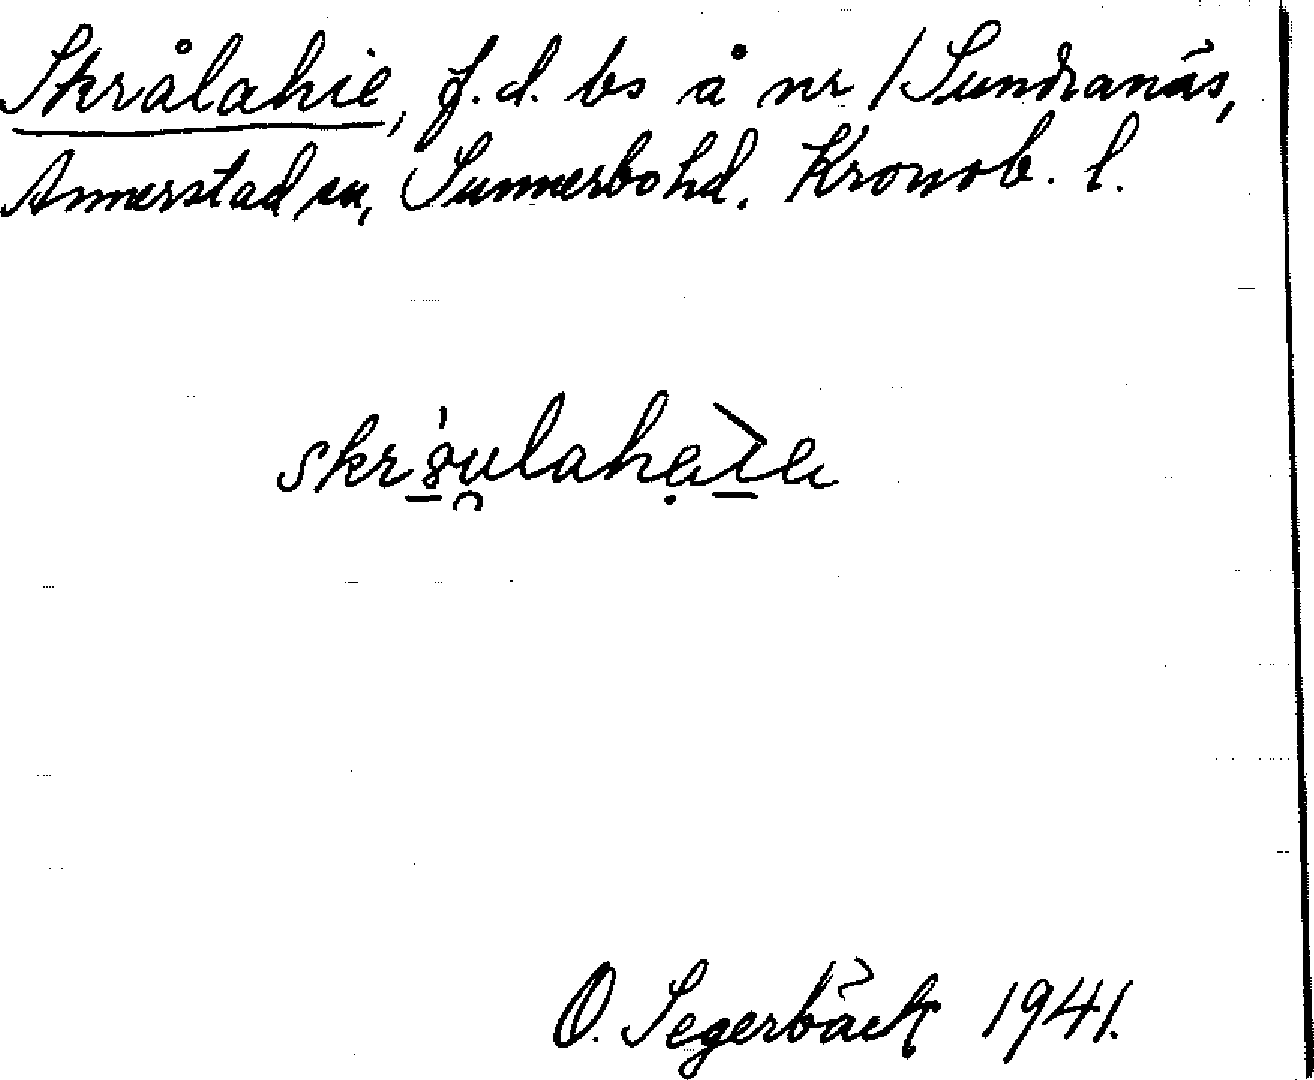 Skrålahie, f.d. bs å nr 1 Sundranäs,
Annerstad sn, Sunnerbo hd. Kronob. l.
O. Segerbäck 1941.